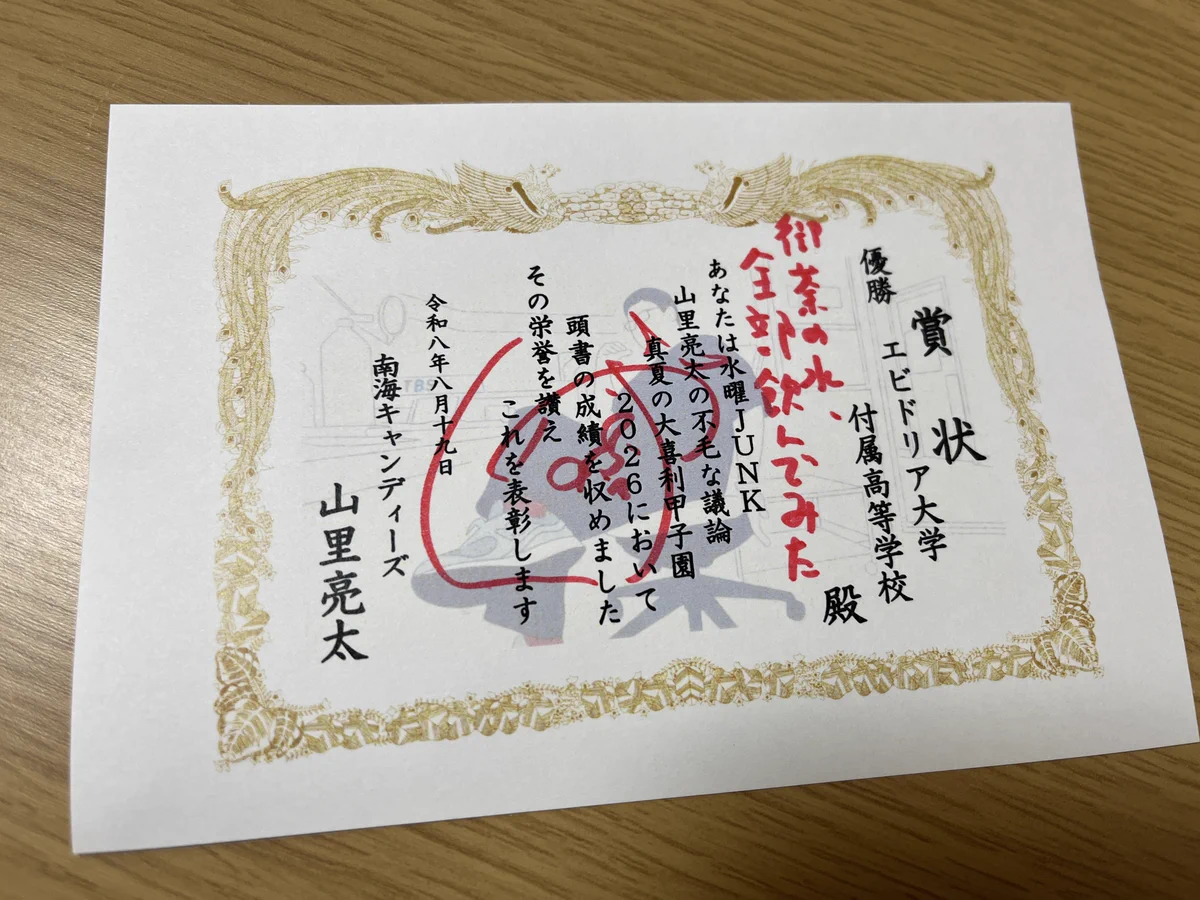 賞状
優勝
エビドリア大学
付属高等学校
御茶の水、
全部飲んでみた
殿
あなたは水曜JUNK
山里亮太の不毛な議論
真夏の大喜利甲子園
2026において
頭書の成績を収めました
その栄誉を讃え
これを表彰します
令和八年八月十九日
南海キャンディーズ
山里亮太
TBS